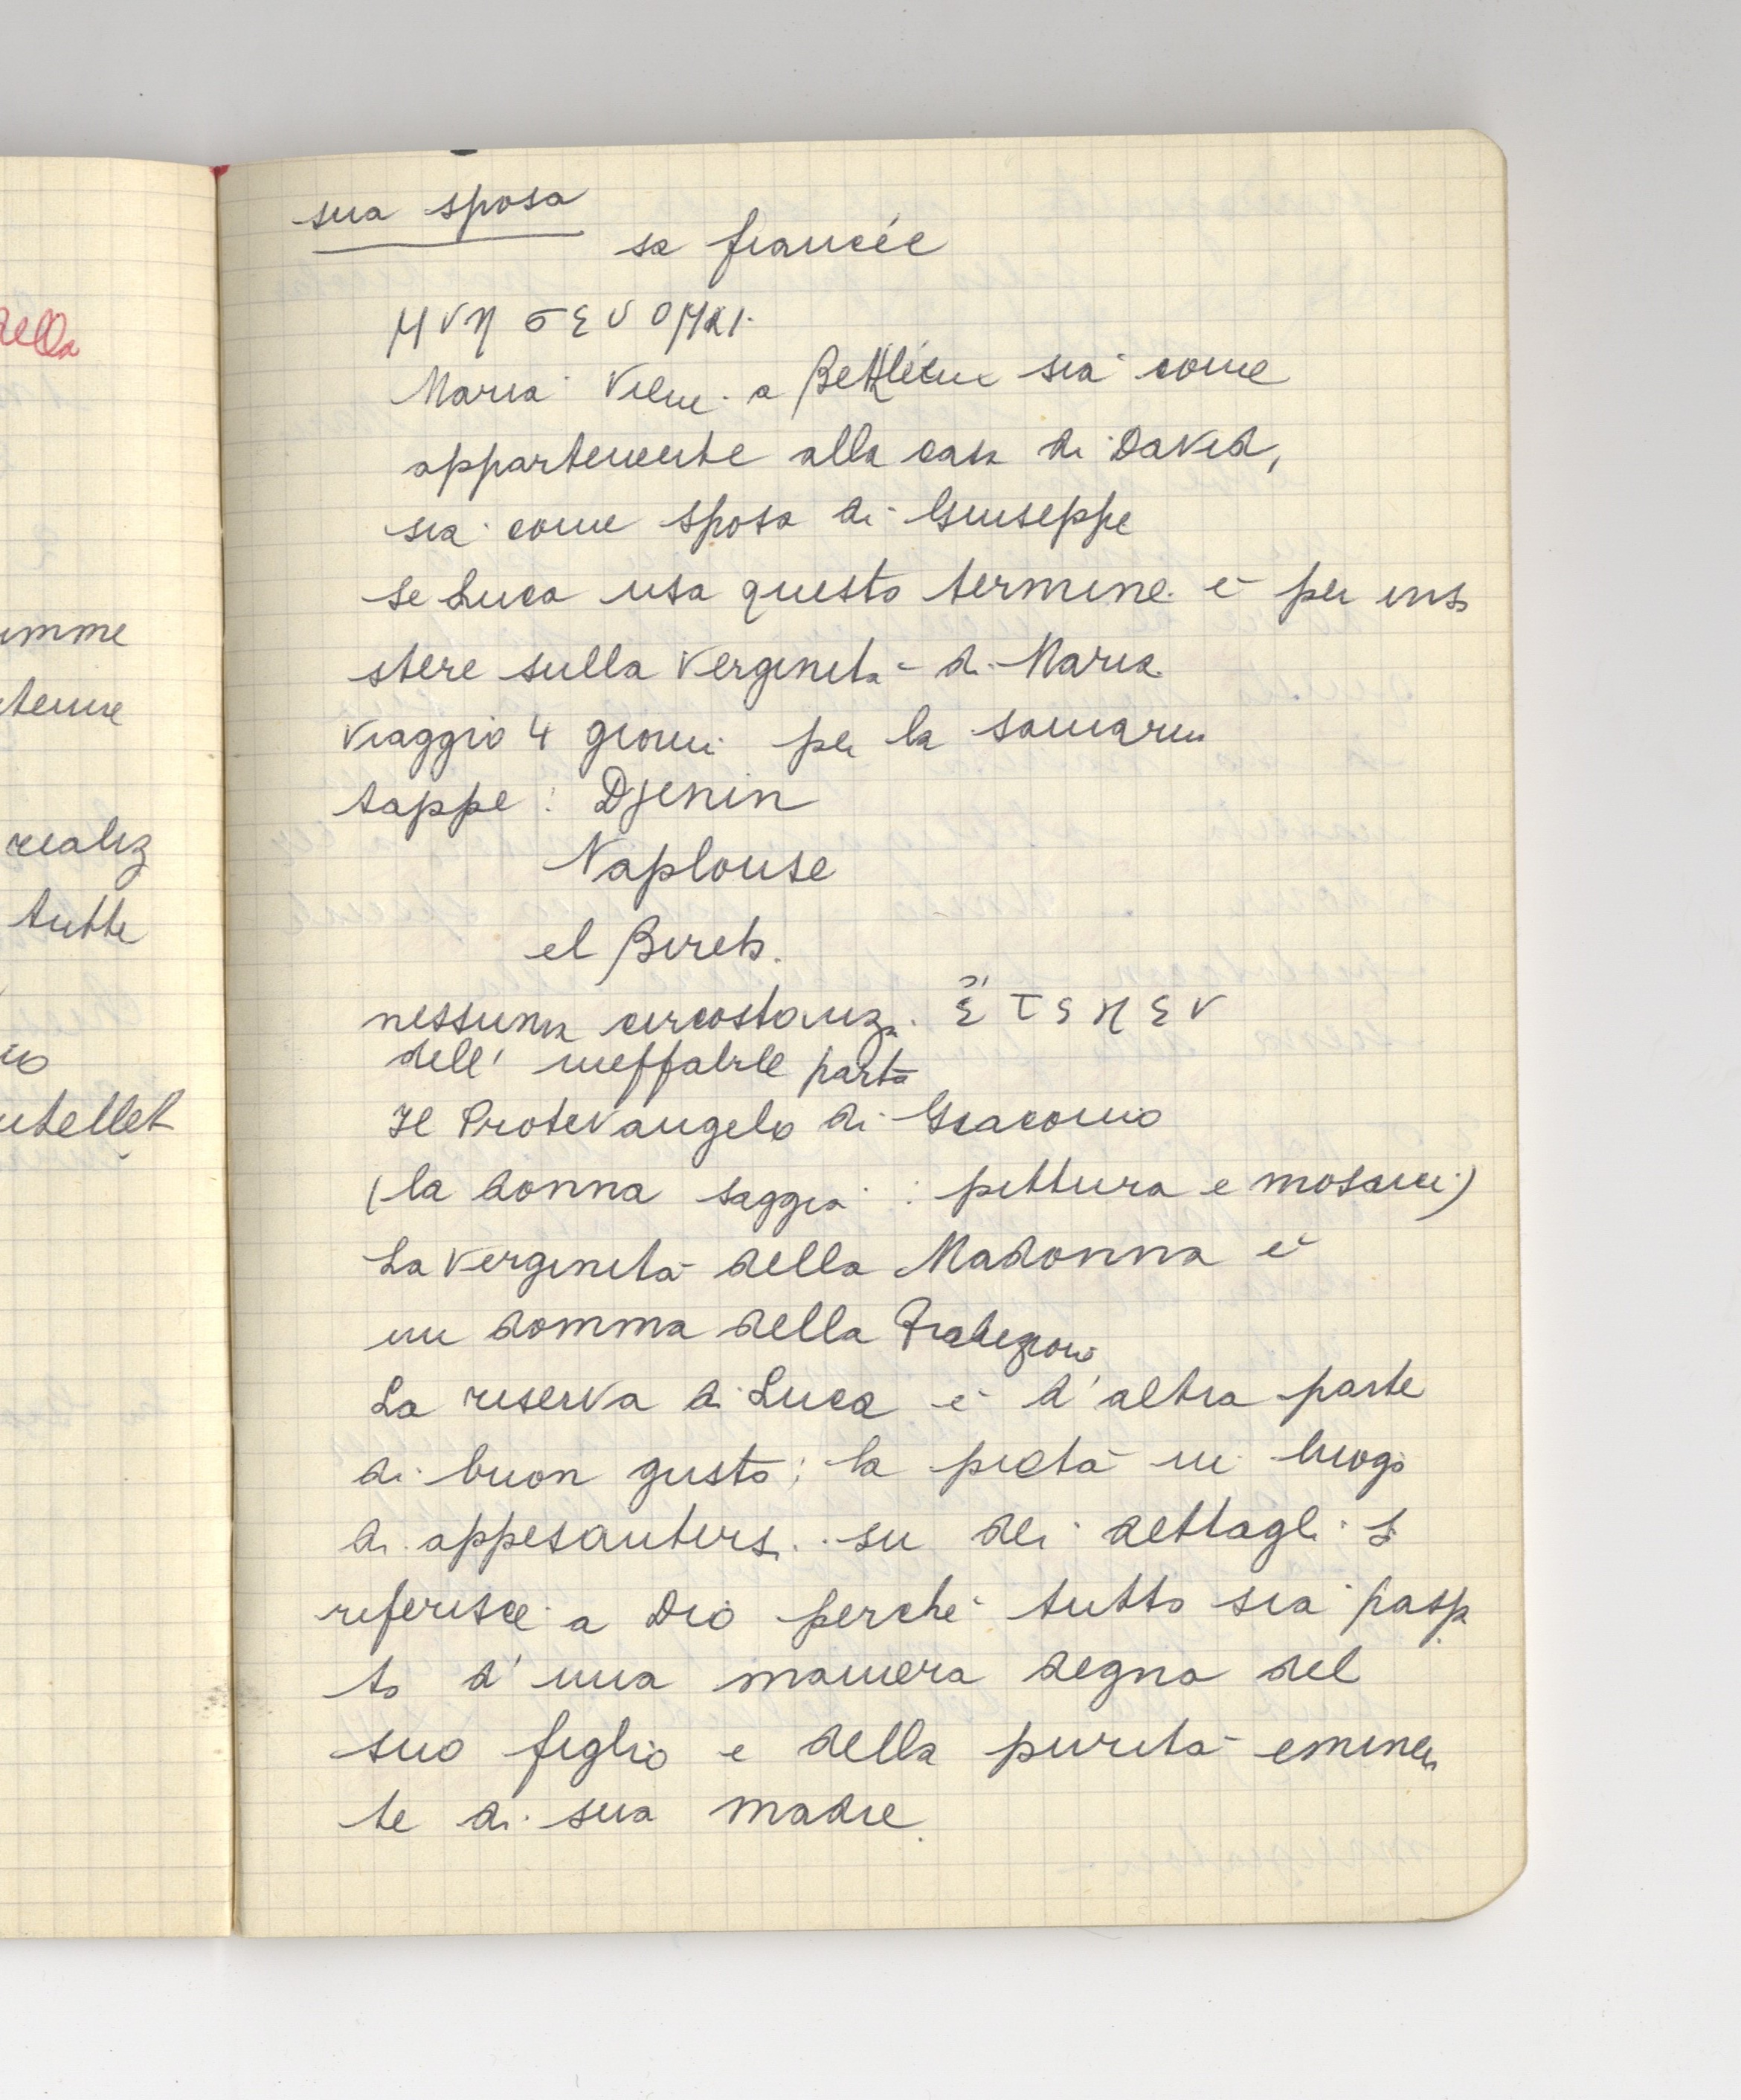 sua sposa
sa fiancée
μνησευομαι
Maria viene a Bethléem sia come
appartenente alla casa di David,
sia come sposa di Giuseppe
se Luca usa questo termine è per insi
stere sulla verginità di Maria
viaggio 4 giorni per la samaria
tappe : Djenin
Naplouse
el Bireh.
nessuna circostanza. ἔτεκεν
dell' ineffabile parto
Il Protevangelo di Giacomo
(la donna saggia : pittura e mosaici)
La verginità della Madonna è
un domma della Tradizione
La riserva di Luca è d'altra parte
di buon gusto; la pietà in luogo
di appesantirsi su dei dettagli si
riferisce a Dio perché tutto sia passa
to d'una maniera degna del
suo figlio e della purità eminen
te di sua madre.
ella
imme
tenne
realiz
tutte
utellet